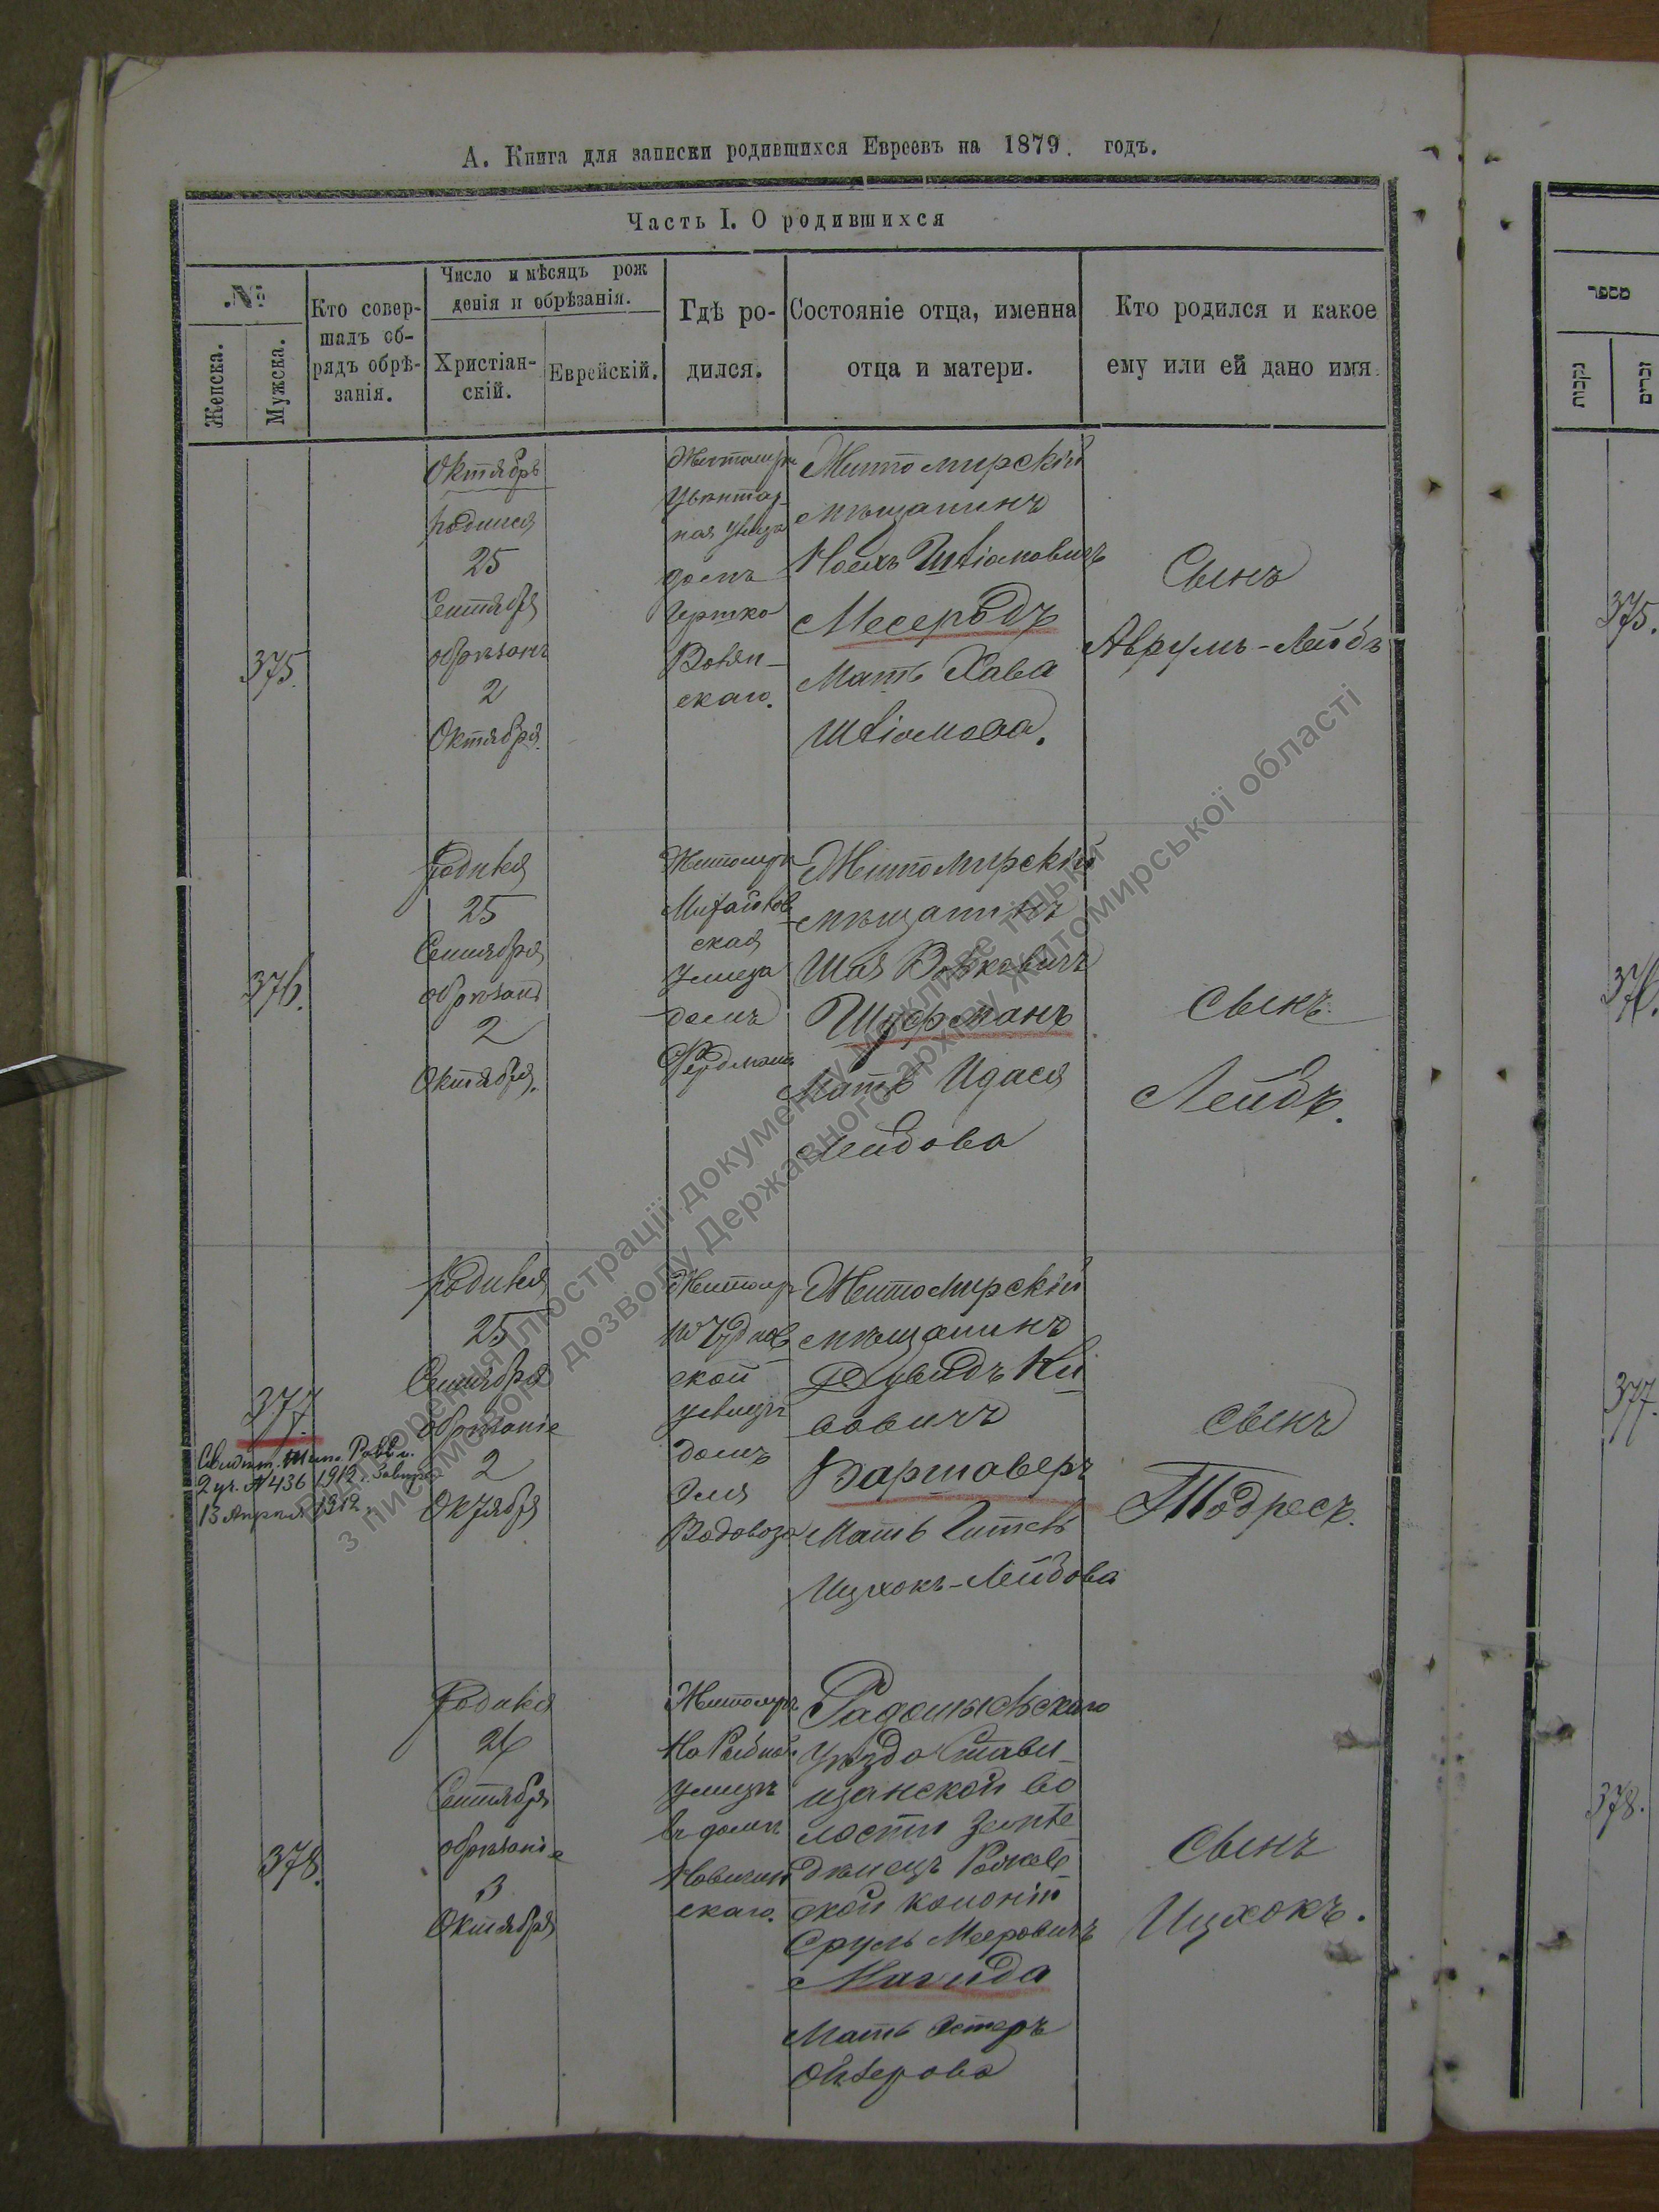 А. Книга для записки родившихся Евреевъ на 1879. годъ.
Часть I. О родившихся
№
Женска.
Мужска.
Кто совер-
шалъ об-
рядъ обрѣ-
занія.
Число и мѣсяцъ рож
денія и обрѣзанія.
Христіан-
скій.
Еврейскій.
Гдѣ ро-
дился.
Состояніе отца, именна
отца и матери.
Кто родился и какое
ему или ей дано имя.
375.
Октябрь
родился
25
Сентября
обрѣзанъ
2
Октября.
Житомиръ
ная улица
домъ
скаго.
Житомирскій
мѣщанинъ
Месеродъ
Мать Хава
Сынъ
Аврумъ-Лейбъ
376.
Родился
25
Сентября
обрѣзанъ
2
Октября.
Житомиръ
Михайлов
ская
улица
домъ
Фердмана
Житомирскій
мѣщанинъ
Шая Волковичъ
Шуфманъ
Мать Идася
Лейбова
Сынъ
Лейбъ.
377.
Свидѣт. Жит. Равв.
2 уч. № 436 1912.
13 Апрѣля 1912.
Родился
25
Сентября
обрѣзаніе
2
Октября
Житомиръ
по Чуднов
ской
улицѣ
домъ
Эля
Водовоза
Житомирскій
мѣщанинъ
Варшаверъ
Мать Гитель
Ицхокъ-Лейбова
Сынъ
Тодресъ.
378.
Родился
26
Сентября
обрѣзаніе
3
Октября
Житомиръ
На Рыбной
улицѣ
въ домѣ
скаго.
Радомысльскаго
уѣзда Стави-
щанской во
лости земле
дѣлецъ
ской колоніи
Сруль Мееровичъ
Магида
Мать Эстеръ
Ойзерова
Сынъ
Ицхокъ.
מספר
נקבות
זכרים
375.
376.
377.
378.
Відтворення ілюстрації документу можливе тільки
з письмового дозволу Державного архіву Житомирської області